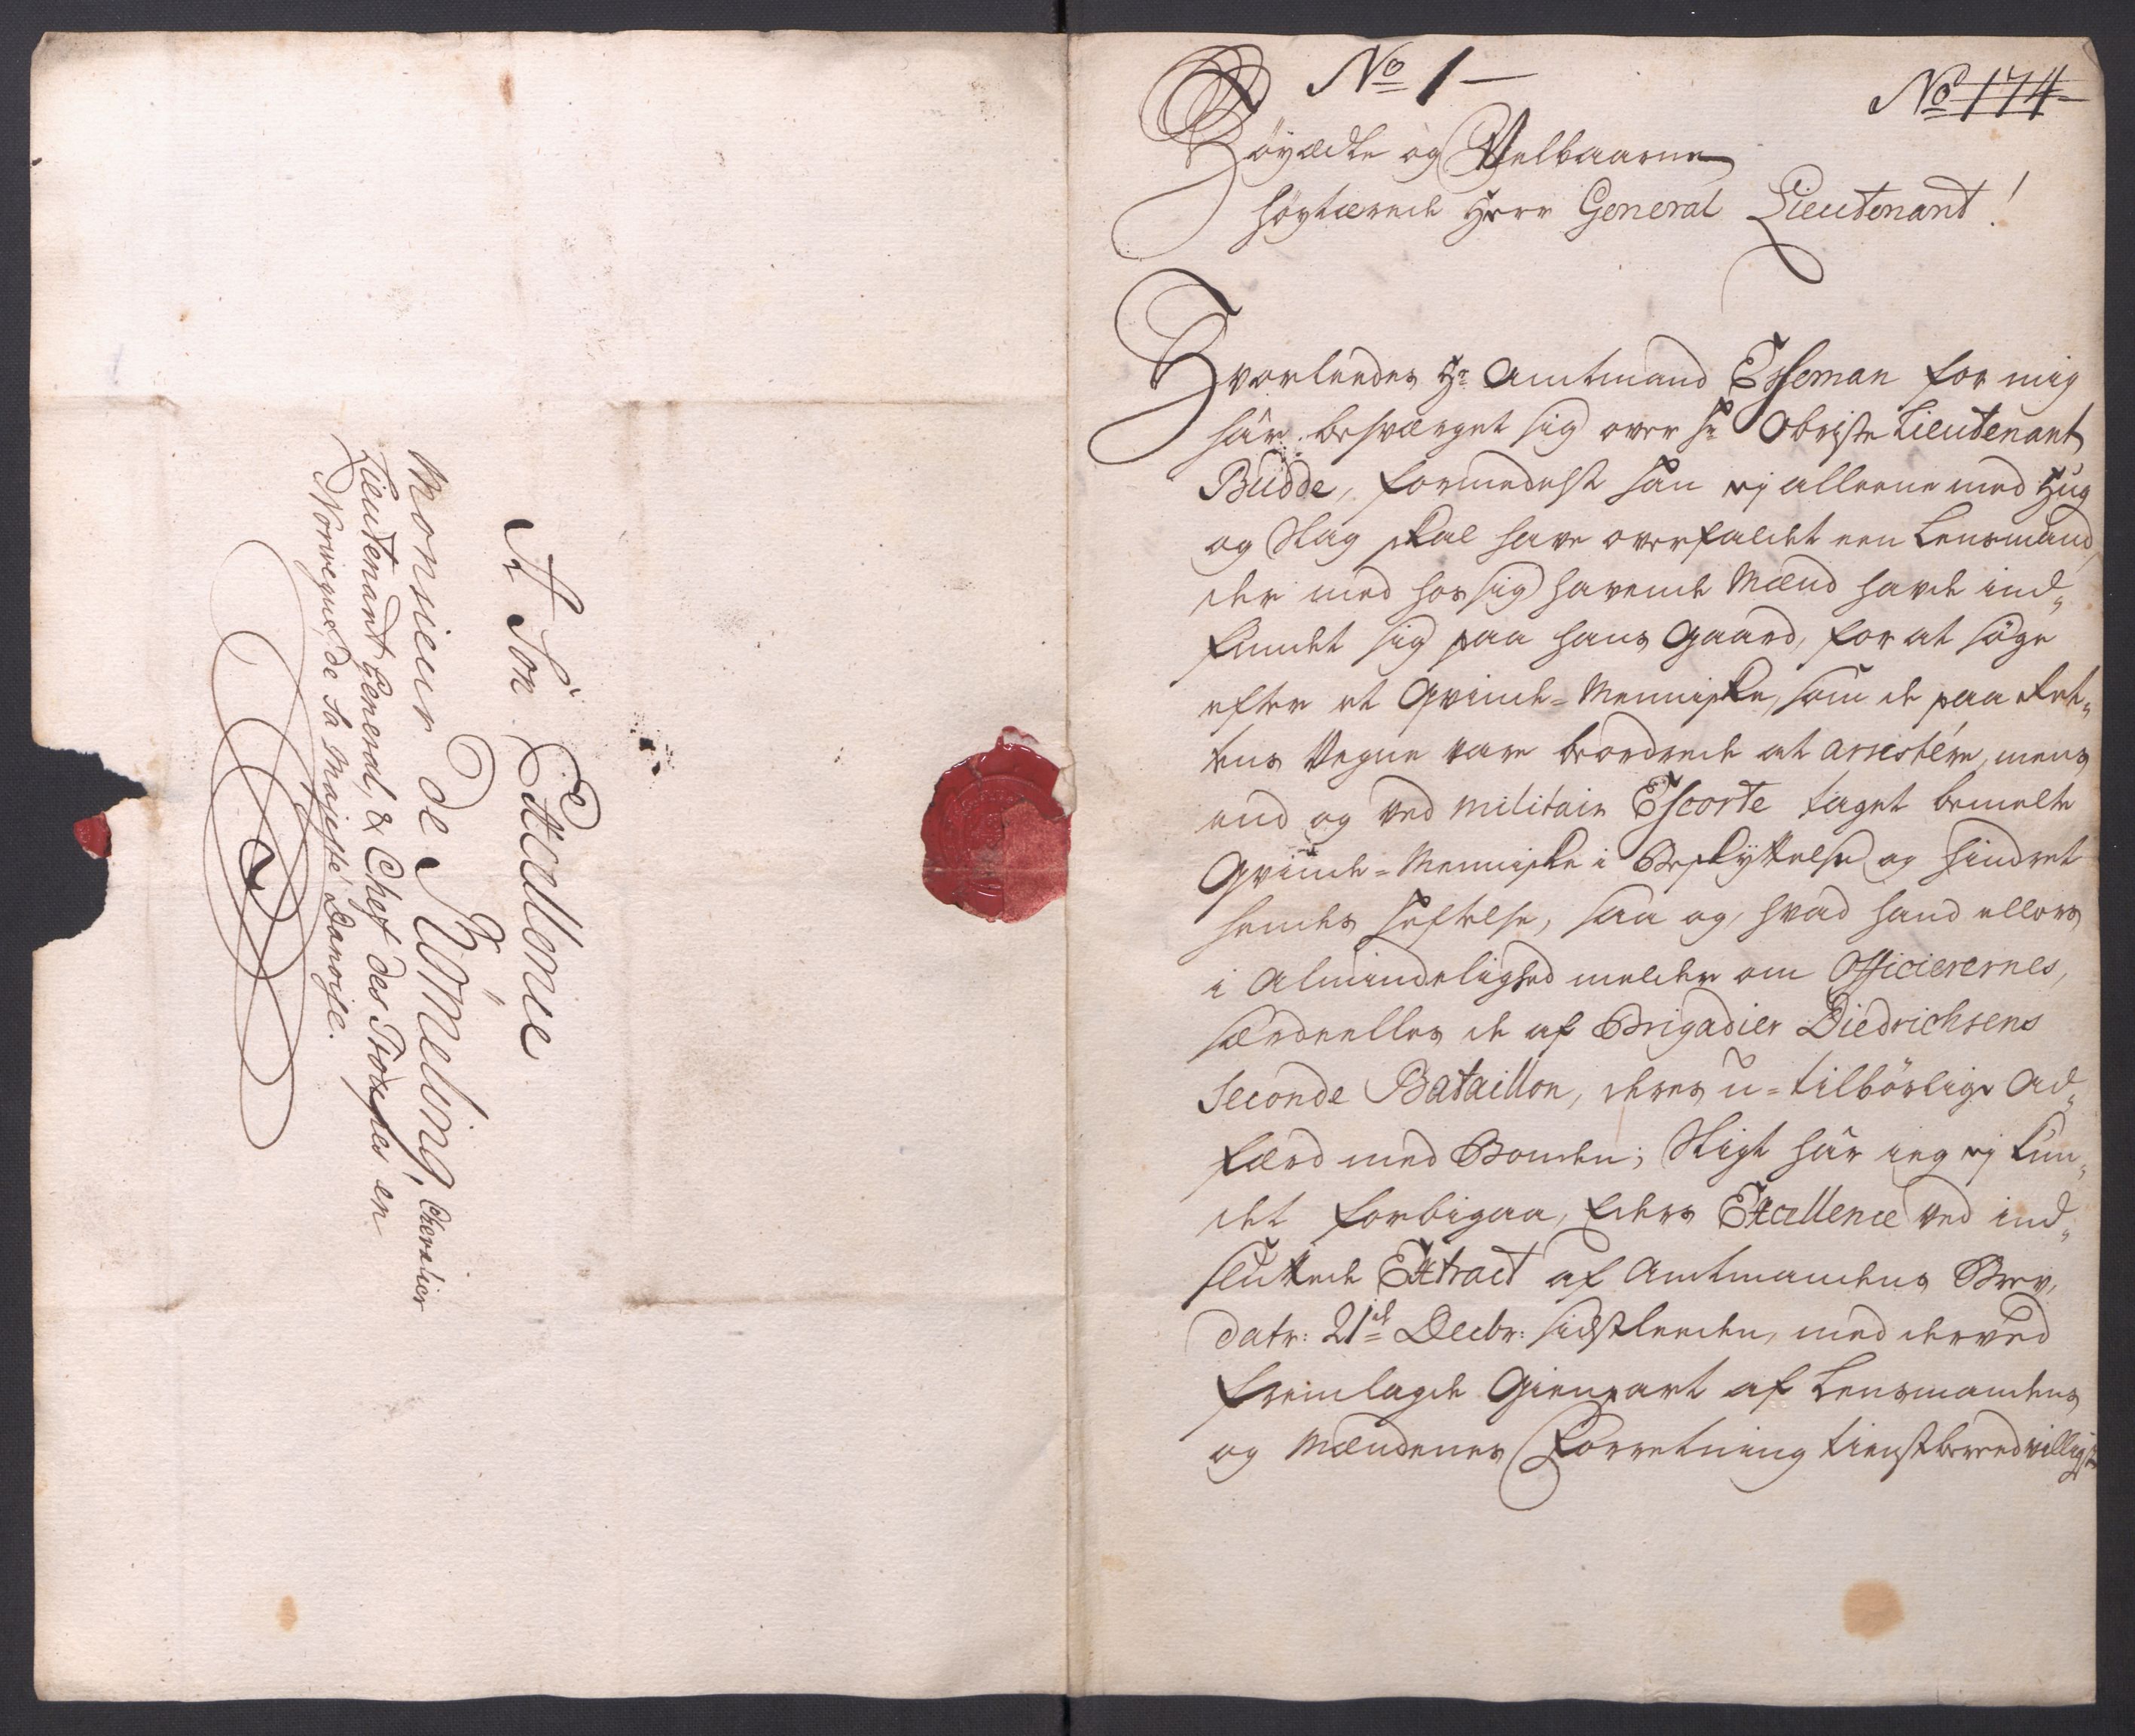 A Son Excellence
Monsieur de Rømeling, Chevalier
Lieutenant General, & Chef des Trouppes en
Norwegue, de Sa Majesté Danoise.
No 1 -
No 174
Høyædle og Velbaarne
høystærede Herr General Lieutenant!
Hvorleedes Hr Amtmand Esseman for mig
har besværget sig over Hr Obriste Lieutenant
Budde, formedelst han ej alleene med Hug
og Slag skal have overfaldet een Lensmand,
der med hos sig havende Mænd havde ind„
fundet sig paa hans Gaard, for at søge
efter et Qvinde-Menniske, som de paa Ret„
tens Vegne vare beordrede at arrestére, mens
end og ved militair Escorte taget bemelte
Qvinde-Menniske i Beskyttelse og hindret
hendes Heftelse, saa og, hvad hand ellers
i Almindelighed melder om Officierernes,
særdeelles de af Brigadier Diedrichsens
Seconde Bataillon, deres u-tilbørlige Ad„
færd med Bonden; Sligt har ieg ej kun„
det forbigaa, Eders Excellence ved ind„
sluttede Extract af Amtmandens Brev,
datr: 21de Decbr: sidstleeden, med derved
fremlagde Gienpart af Lensmandens
og Mændenes Forretning tienstbereedvilligst